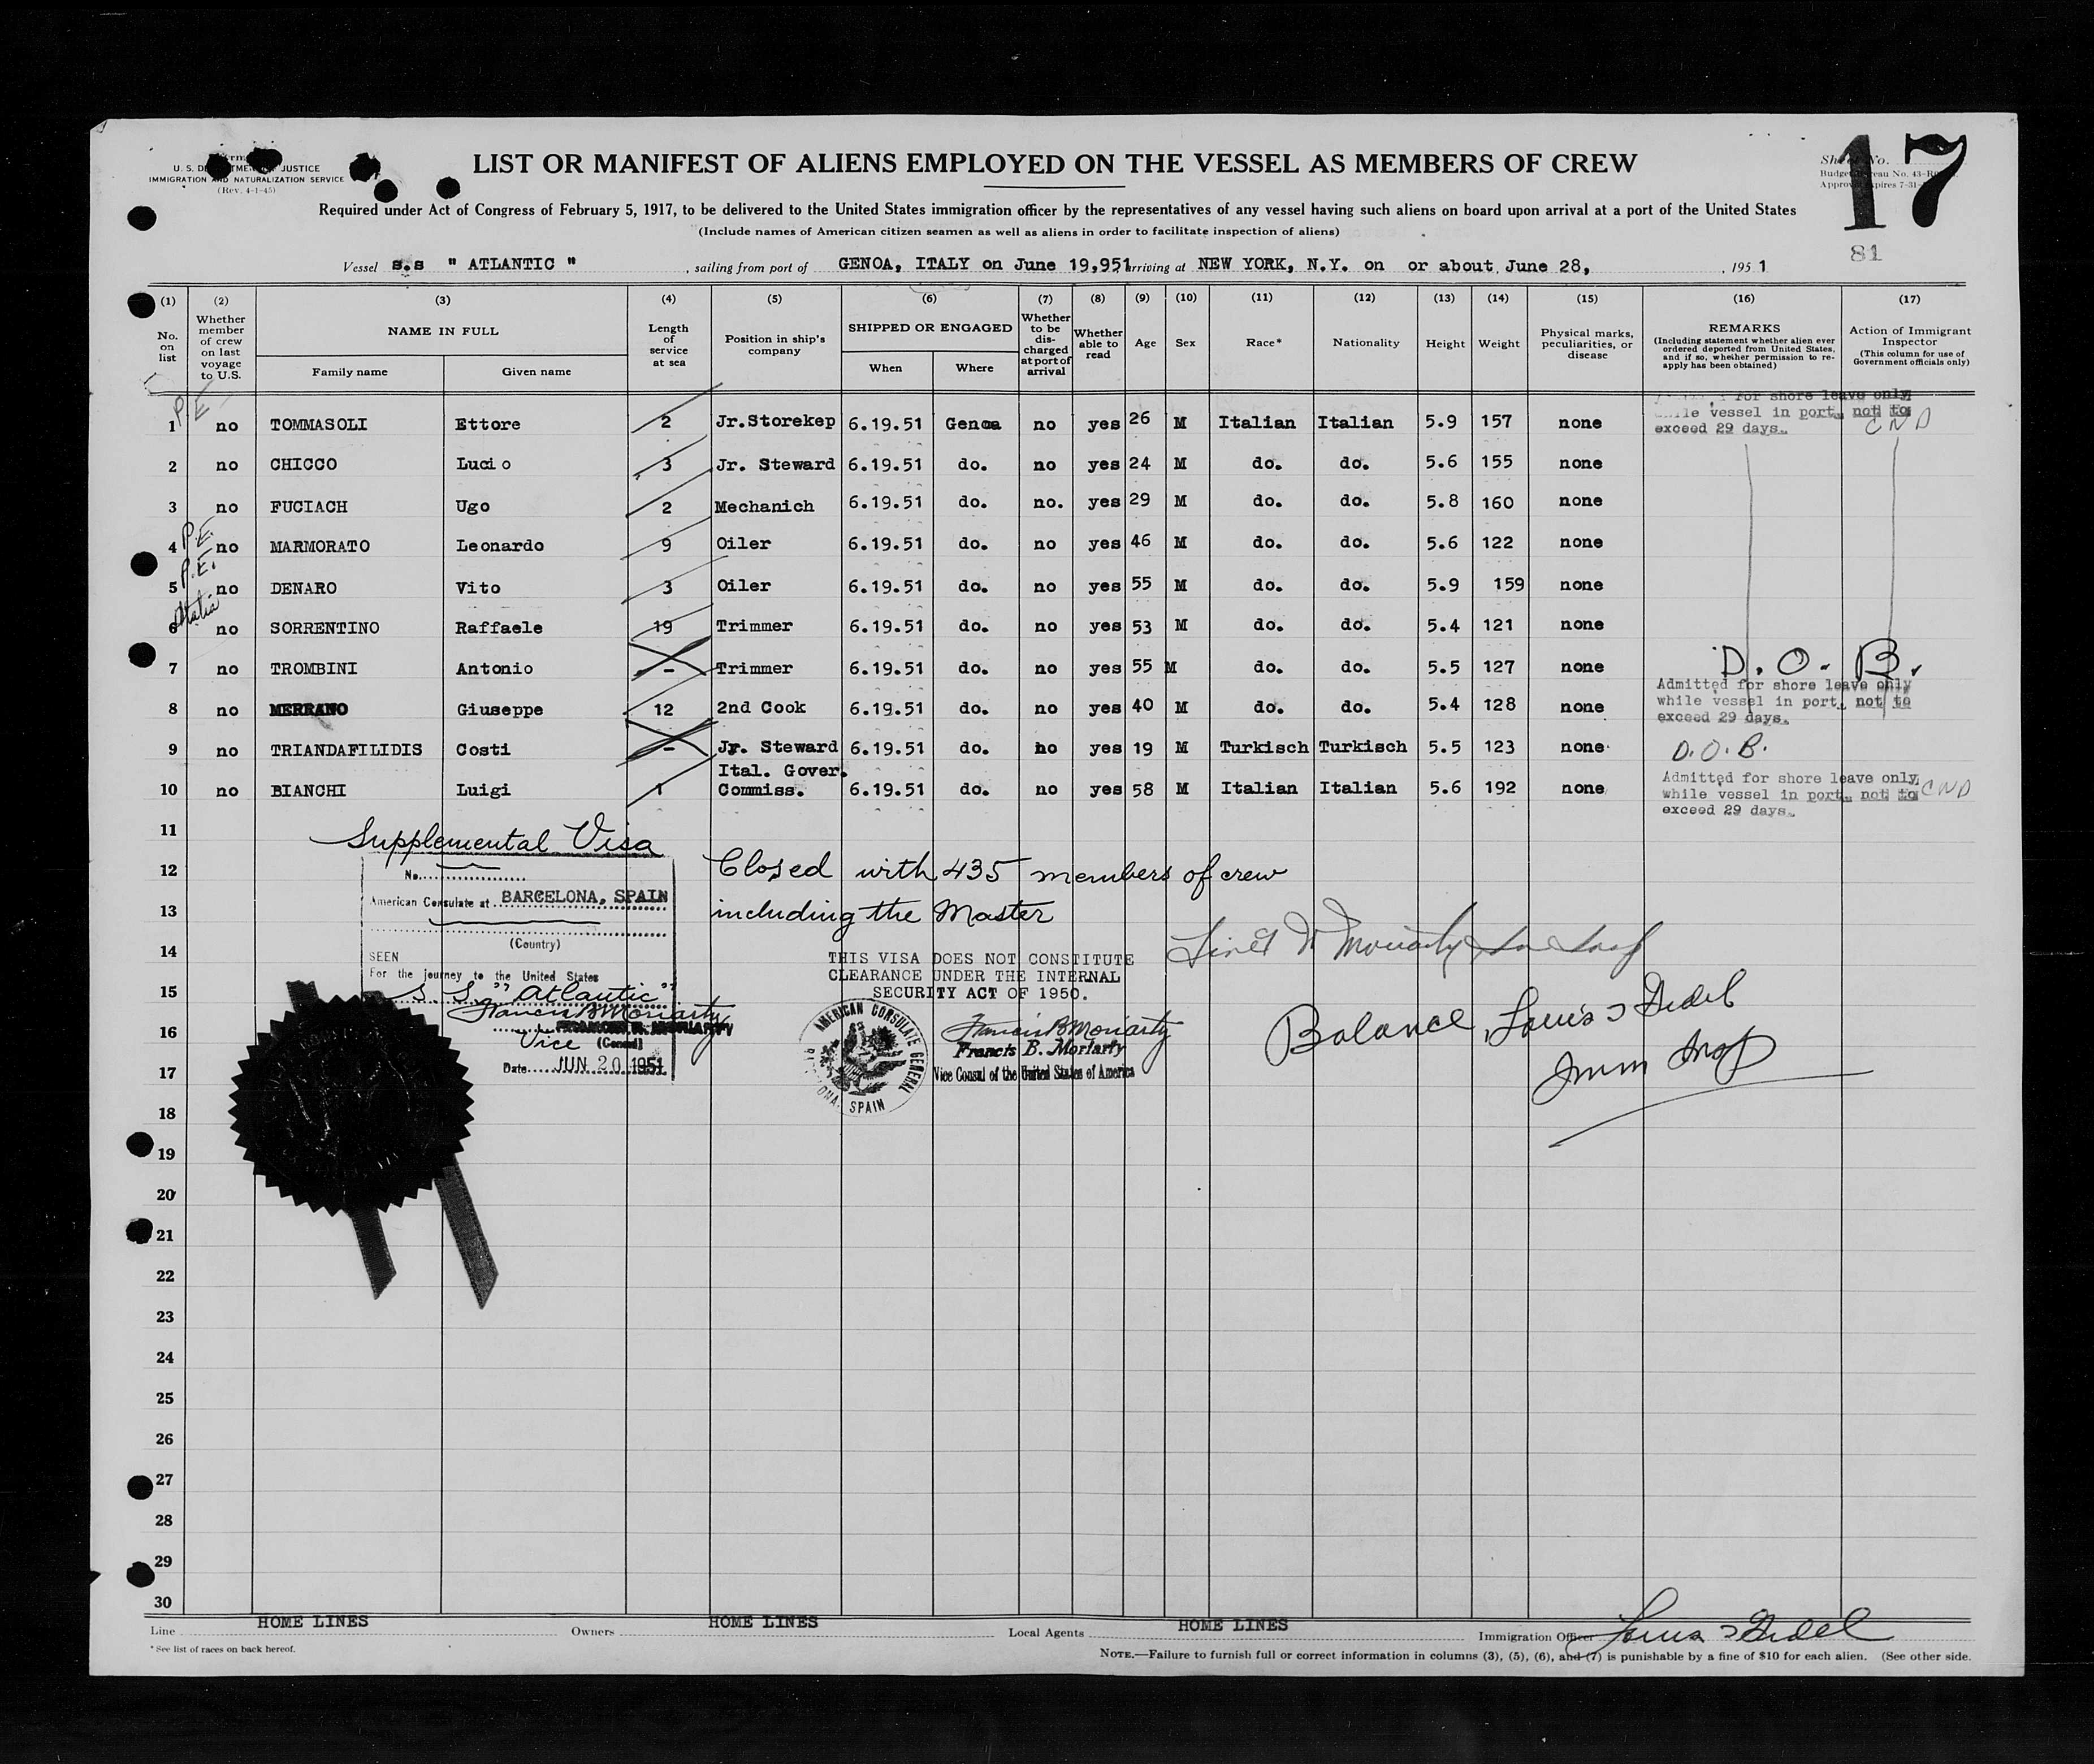 U. S. DEPARTMENT OF JUSTICE
IMMIGRATION AND NATURALIZATION SERVICE
(Rev. 4-1-45)
LIST OR MANIFEST OF ALIENS EMPLOYED ON THE VESSEL AS MEMBERS OF CREW
Sheet No.
17
Required under Act of Congress of February 5, 1917, to be delivered to the United States immigration officer by the representatives of any vessel having such aliens on board upon arrival at a port of the United States
(Include names of American citizen seamen as well as aliens in order to facilitate inspection of aliens)
81
Vessel s.s " ATLANTIC " , sailing from port of GENOA, ITALY on June 19,951 arriving at NEW YORK, N.Y. on or about June 28, , 195 1
(1) (2) (3) (4) (5) (6) (7) (8) (9) (10) (11) (12) (13) (14) (15) (16) (17)
No. on list
Whether member of crew on last voyage to U.S.
NAME IN FULL
Family name
Given name
Length of service at sea
Position in ship's company
SHIPPED OR ENGAGED
When
Where
Whether to be discharged at port of arrival
Whether able to read
Age
Sex
Race*
Nationality
Height
Weight
Physical marks, peculiarities, or disease
REMARKS
(Including statement whether alien ever ordered deported from United States, and if so, whether permission to reapply has been obtained)
Action of Immigrant Inspector
(This column for use of Government officials only)
P.E.
for shore leave only
while vessel in port, not to
exceed 29 days. CND
1 no TOMMASOLI Ettore 2 Jr.Storekep 6.19.51 Genoa no yes 26 M Italian Italian 5.9 157 none
2 no CHICCO Lucio 3 Jr. Steward 6.19.51 do. no yes 24 M do. do. 5.6 155 none
3 no FUCIACH Ugo 2 Mechanich 6.19.51 do. no. yes 29 M do. do. 5.8 160 none
P.E.
4 no MARMORATO Leonardo 9 Oiler 6.19.51 do. no yes 46 M do. do. 5.6 122 none
P.E.
5 no DENARO Vito 3 Oiler 6.19.51 do. no yes 55 M do. do. 5.9 159 none
6 no SORRENTINO Raffaele 19 Trimmer 6.19.51 do. no yes 53 M do. do. 5.4 121 none
7 no TROMBINI Antonio - Trimmer 6.19.51 do. no yes 55 M do. do. 5.5 127 none D. O. B.
Admitted for shore leave only
while vessel in port, not to
exceed 29 days.
8 no MERRANO Giuseppe 12 2nd Cook 6.19.51 do. no yes 40 M do. do. 5.4 128 none
9 no TRIANDAFILIDIS Costi - Jr. Steward 6.19.51 do. no yes 19 M Turkisch Turkisch 5.5 123 none D.O.B.
10 no BIANCHI Luigi 1 Ital. Gover. Commiss. 6.19.51 do. no yes 58 M Italian Italian 5.6 192 none
Admitted for shore leave only
while vessel in port, not to CND
exceed 29 days.
11
12
13
14
15
16
17
18
19
20
21
22
23
24
25
26
27
28
29
30
Supplemental Visa
No.
American Consulate at BARCELONA, SPAIN
(Country)
SEEN
For the journey to the United States
S. S. "Atlantic"
Francis B Moriarty
Vice (Consul)
Date JUN 20 1951
Closed with 435 members of crew
including the Master
THIS VISA DOES NOT CONSTITUTE
CLEARANCE UNDER THE INTERNAL
SECURITY ACT OF 1950.
AMERICAN CONSULATE GENERAL
SPAIN
Francis B Moriarty
Francis B. Moriarty
Vice Consul of the United States of America
Balance
HOME LINES HOME LINES HOME LINES
Line Owners Local Agents Immigration Officer
* See list of races on back hereof.
NOTE.—Failure to furnish full or correct information in columns (3), (5), (6), and (7) is punishable by a fine of $10 for each alien. (See other side.